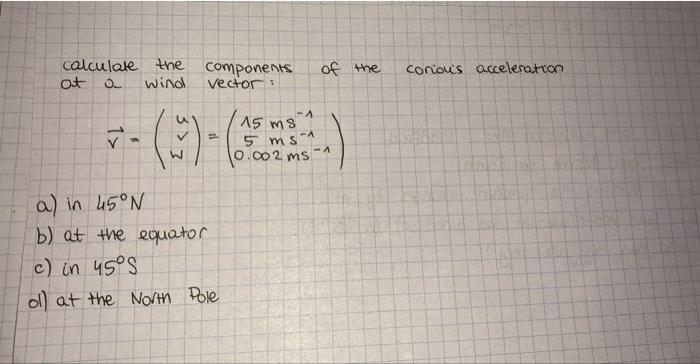 calculate the components of the coriolis acceleration
at a wind vector :
v⃗ = (u v w) = (15 ms⁻¹ 5 ms⁻¹ 0.002 ms⁻¹)
a) in 45°N
b) at the equator
c) in 45°S
d) at the North Pole